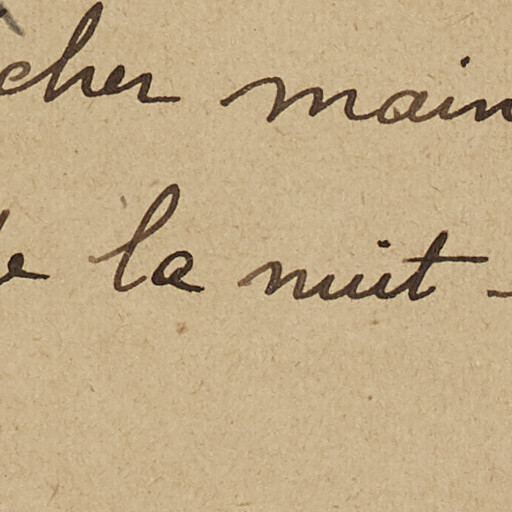 cher main
de la nuit -